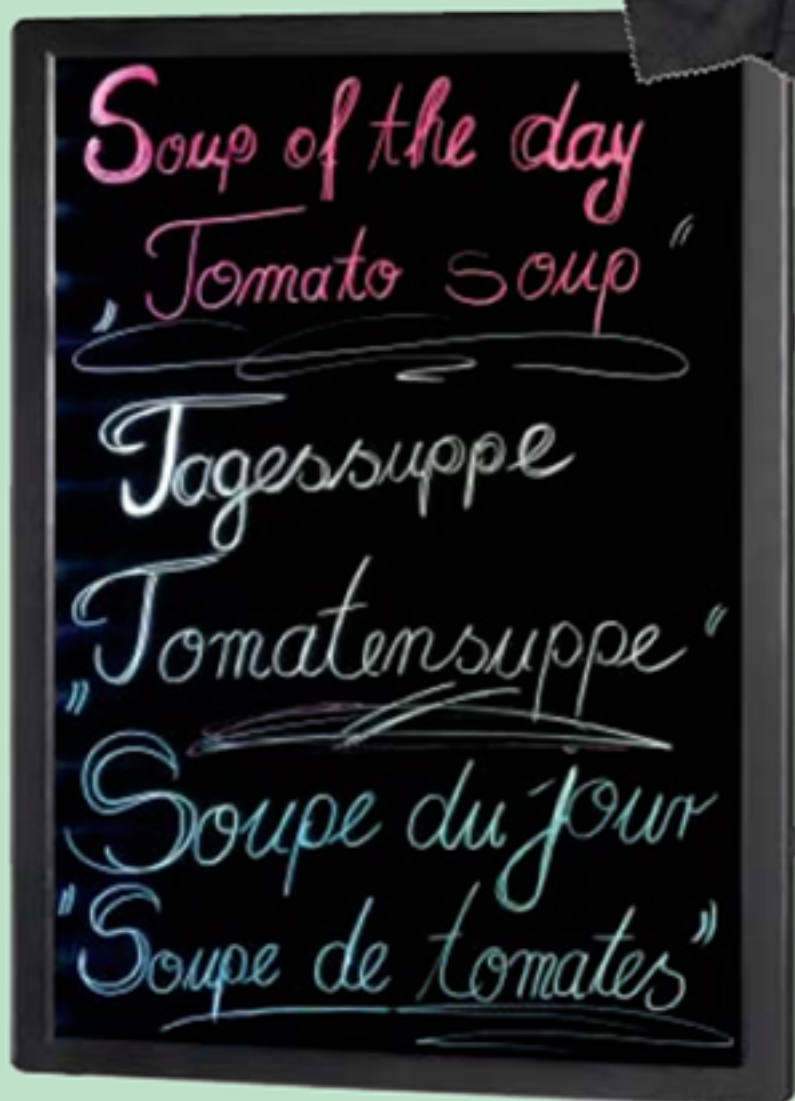 Soup of the day
„Tomato soup“
Tagessuppe
„Tomatensuppe“
Soupe du jour
"Soupe de tomates"